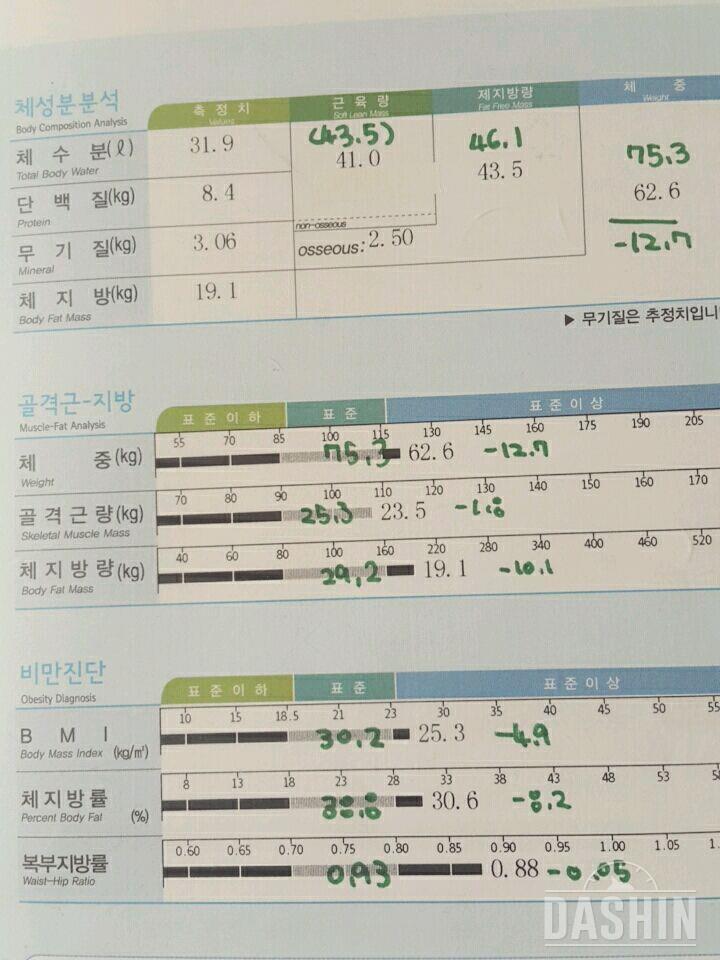 체성분분석 측정치 근육량 제지방량 체중
Body Composition Analysis Values Soft Lean Mass Fat Free Mass Weight
체수분(ℓ) 31.9 (43.5) 46.1 75.3
Total Body Water 41.0 43.5 62.6
단백질(kg) 8.4 -12.7
Protein non-osseous
무기질(kg) 3.06 osseous: 2.50
Mineral
체지방(kg) 19.1
Body Fat Mass
▶ 무기질은 추정치입니
골격근-지방 표준이하 표준 표준이상
Muscle-Fat Analysis
55 70 85 100 115 130 145 160 175 190 205
체중(kg) 75.3 62.6 -12.7
Weight
70 80 90 100 110 120 130 140 150 160 170
골격근량(kg) 25.3 23.5 -1.8
Skeletal Muscle Mass
40 60 80 100 160 220 280 340 400 460 520
체지방량(kg) 29.2 19.1 -10.1
Body Fat Mass
비만진단 표준이하 표준 표준이상
Obesity Diagnosis
10 15 18.5 21 23 30 35 40 45 50 55
BMI 30.2 25.3 -4.9
Body Mass Index (kg/㎡)
8 13 18 23 28 33 38 43 48 53
체지방률 38.8 30.6 -8.2
Percent Body Fat (%)
0.60 0.65 0.70 0.75 0.80 0.85 0.90 0.95 1.00 1.05
복부지방률 0.93 0.88 -0.05
Waist-Hip Ratio
DASHIN